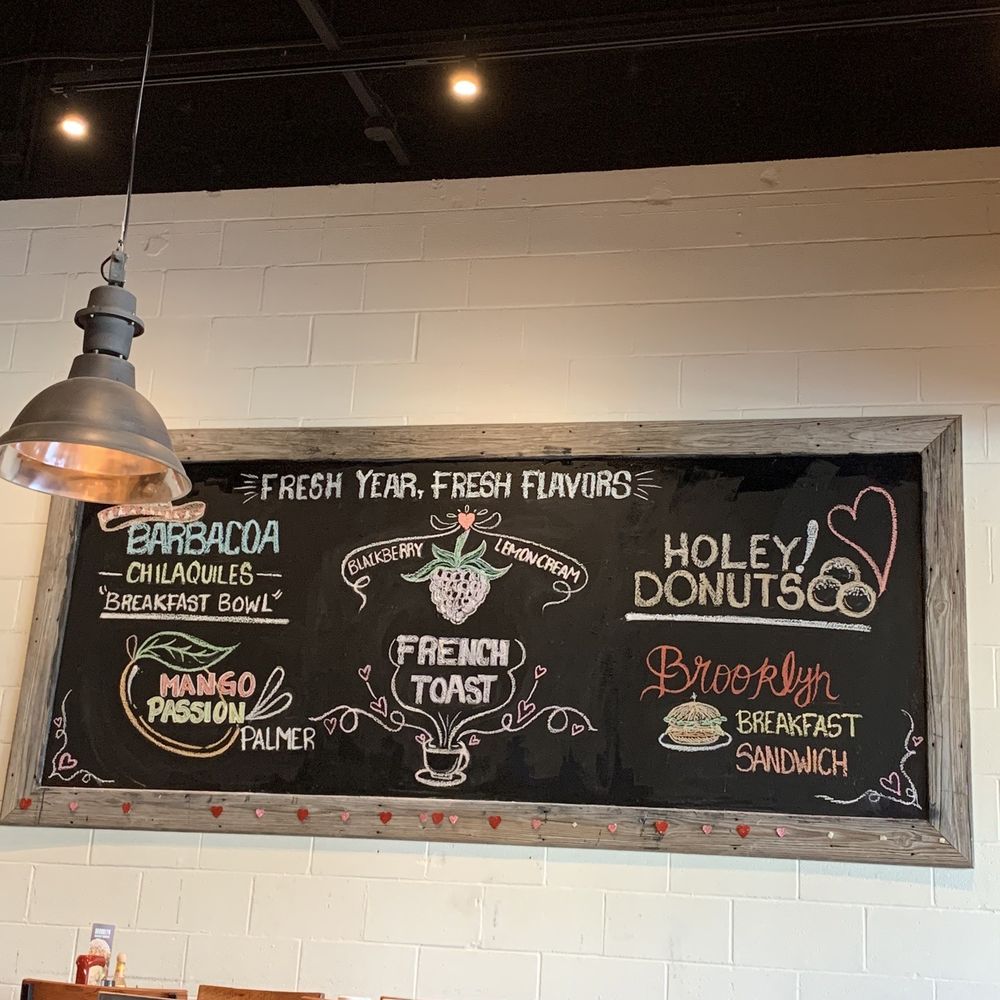 FRESH YEAR, FRESH FLAVORS
BARBACOA
CHILAQUILES
"BREAKFAST BOWL"
BLACKBERRY LEMON CREAM
FRENCH
TOAST
HOLEY!
DONUTS
MANGO
PASSION
PALMER
Brooklyn
BREAKFAST
SANDWICH
BROOKLYN